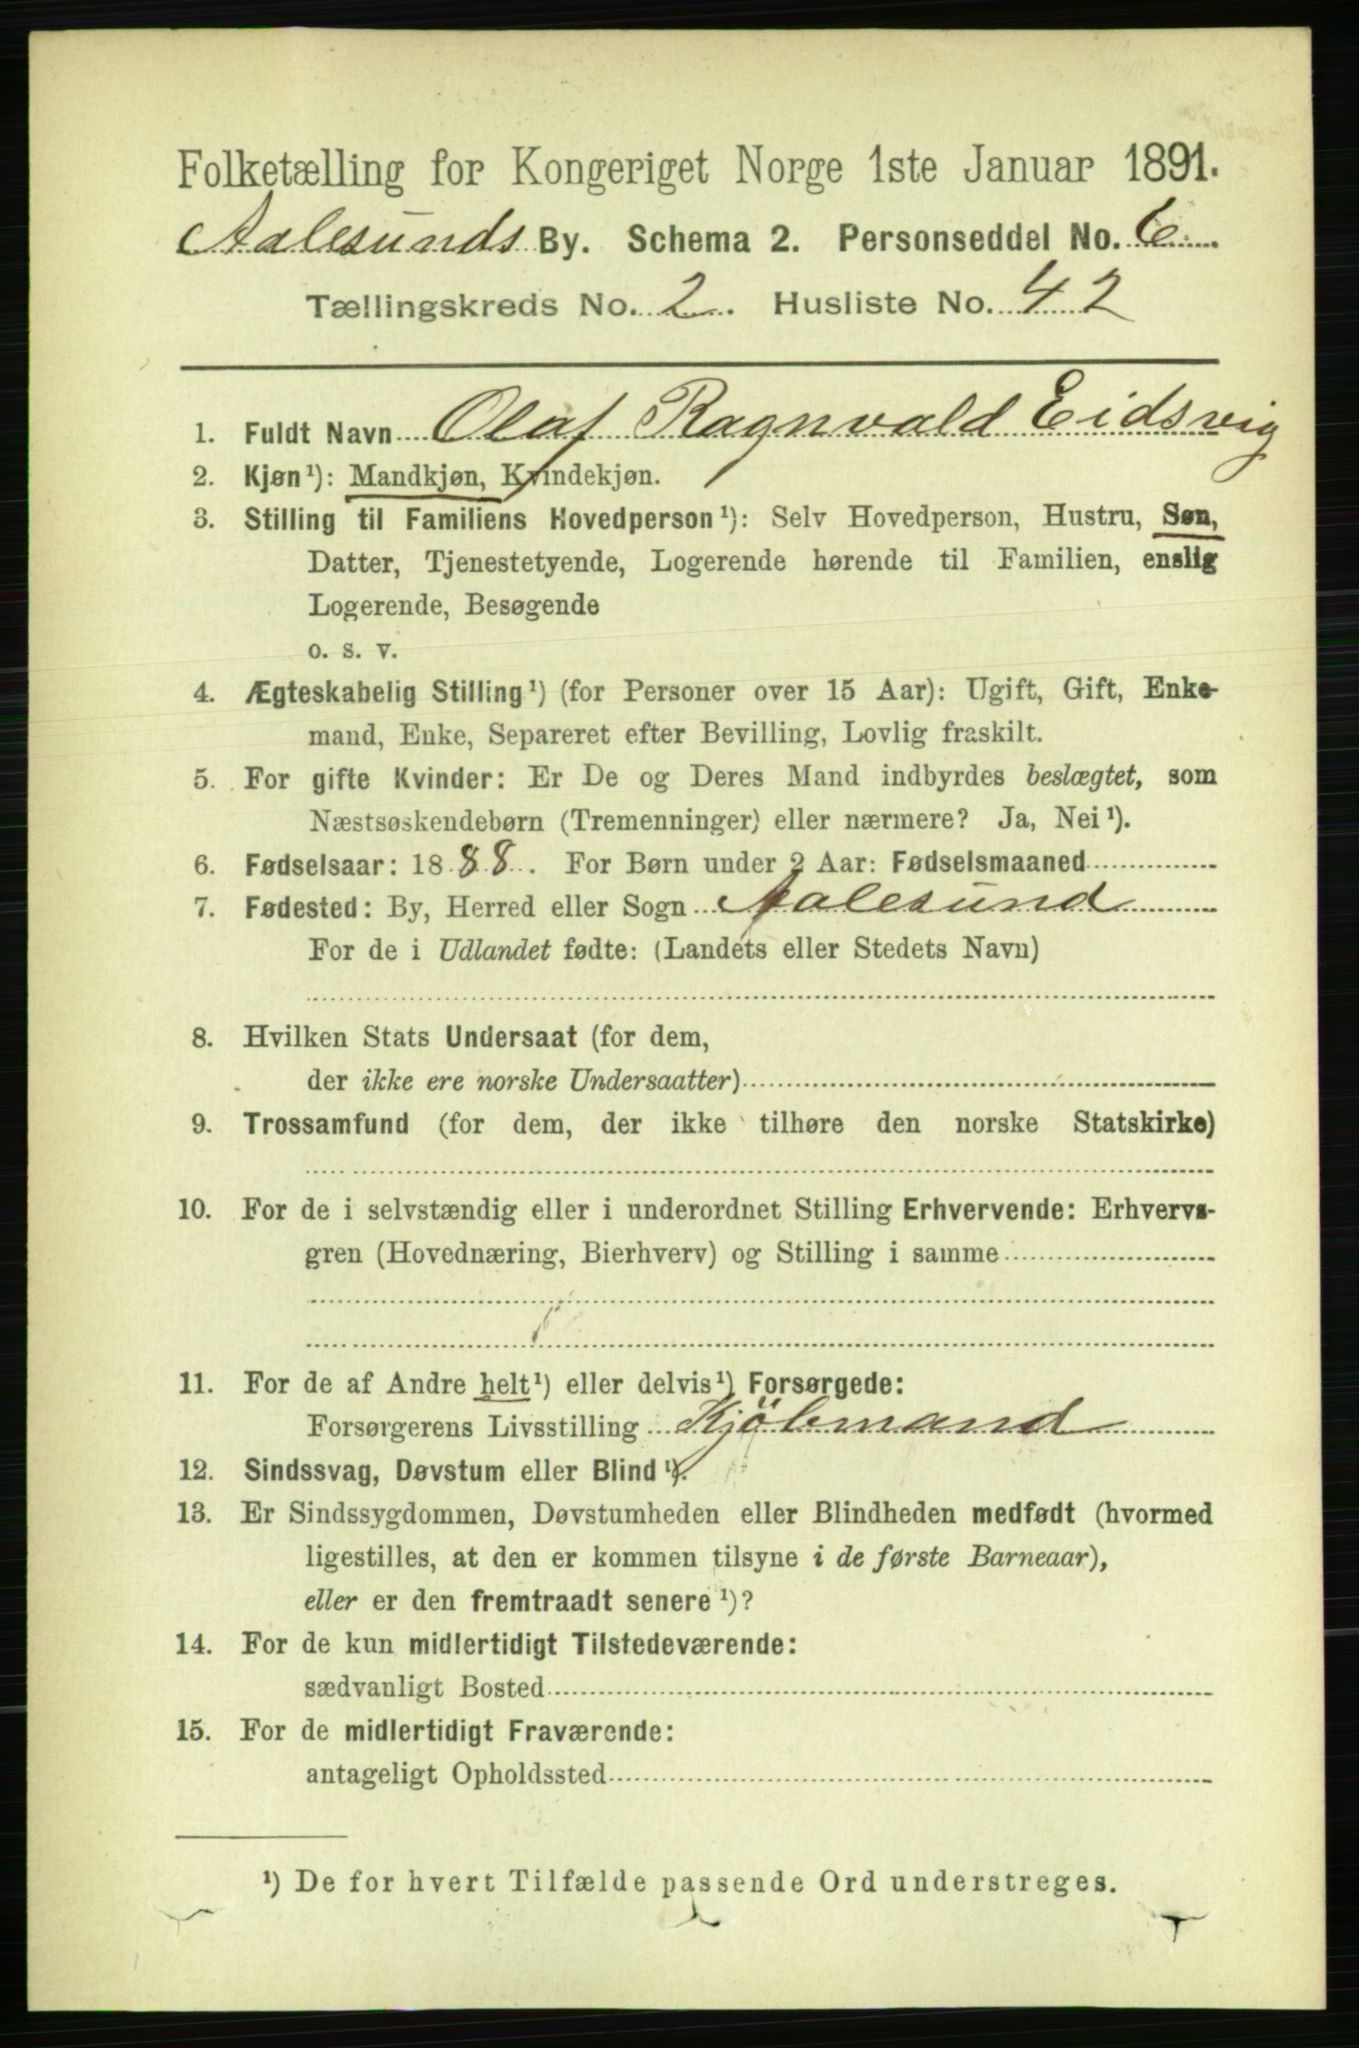 Folketælling for Kongeriget Norge 1ste Januar 1891.
Aalesunds By. Schema 2. Personseddel No. 6
Tællingskreds No. 2. Husliste No. 42
1. Fuldt Navn Olaf Ragnvald Eidsvig
2. Kjøn¹): Mandkjøn, Kvindekjøn.
3. Stilling til Familiens Hovedperson¹): Selv Hovedperson, Hustru, Søn,
Datter, Tjenestetyende, Logerende hørende til Familien, enslig
Logerende, Besøgende
o. s. v.
4. Ægteskabelig Stilling¹) (for Personer over 15 Aar): Ugift, Gift, Enke-
mand, Enke, Separeret efter Bevilling, Lovlig fraskilt.
5. For gifte Kvinder: Er De og Deres Mand indbyrdes beslægtet, som
Næstsøskendebørn (Tremenninger) eller nærmere? Ja, Nei¹).
6. Fødselsaar: 1888. For Børn under 2 Aar: Fødselsmaaned
7. Fødested: By, Herred eller Sogn Aalesund
For de i Udlandet fødte: (Landets eller Stedets Navn)
8. Hvilken Stats Undersaat (for dem,
der ikke ere norske Undersaatter)
9. Trossamfund (for dem, der ikke tilhøre den norske Statskirke)
10. For de i selvstændig eller i underordnet Stilling Erhvervende: Erhvervs-
gren (Hovednæring, Bierhverv) og Stilling i samme
11. For de af Andre helt¹) eller delvis¹) Forsørgede:
Forsørgerens Livsstilling Kjöbmand
12. Sindssvag, Døvstum eller Blind¹).
13. Er Sindssygdommen, Døvstumheden eller Blindheden medfødt (hvormed
ligestilles, at den er kommen tilsyne i de første Barneaar),
eller er den fremtraadt senere¹)?
14. For de kun midlertidigt Tilstedeværende:
sædvanligt Bosted
15. For de midlertidigt Fraværende:
antageligt Opholdssted
¹) De for hvert Tilfælde passende Ord understreges.